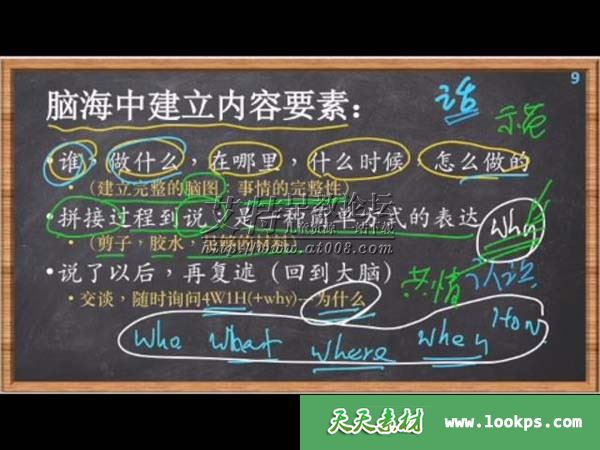 9
脑海中建立内容要素：
话
示范
•谁，做什么，在哪里，什么时候，怎么做的
•（建立完整的脑图：事情的完整性）
•拼接过程到说，是一种简单方式的表达
why
艾特早教论坛
www.at008.com
•（剪子，胶水，
•说了以后，再复述（回到大脑）
共情
认识
•交谈，随时询问4W1H(+why)--为什么
Who What where when HOW
天天素材 www.lookps.com